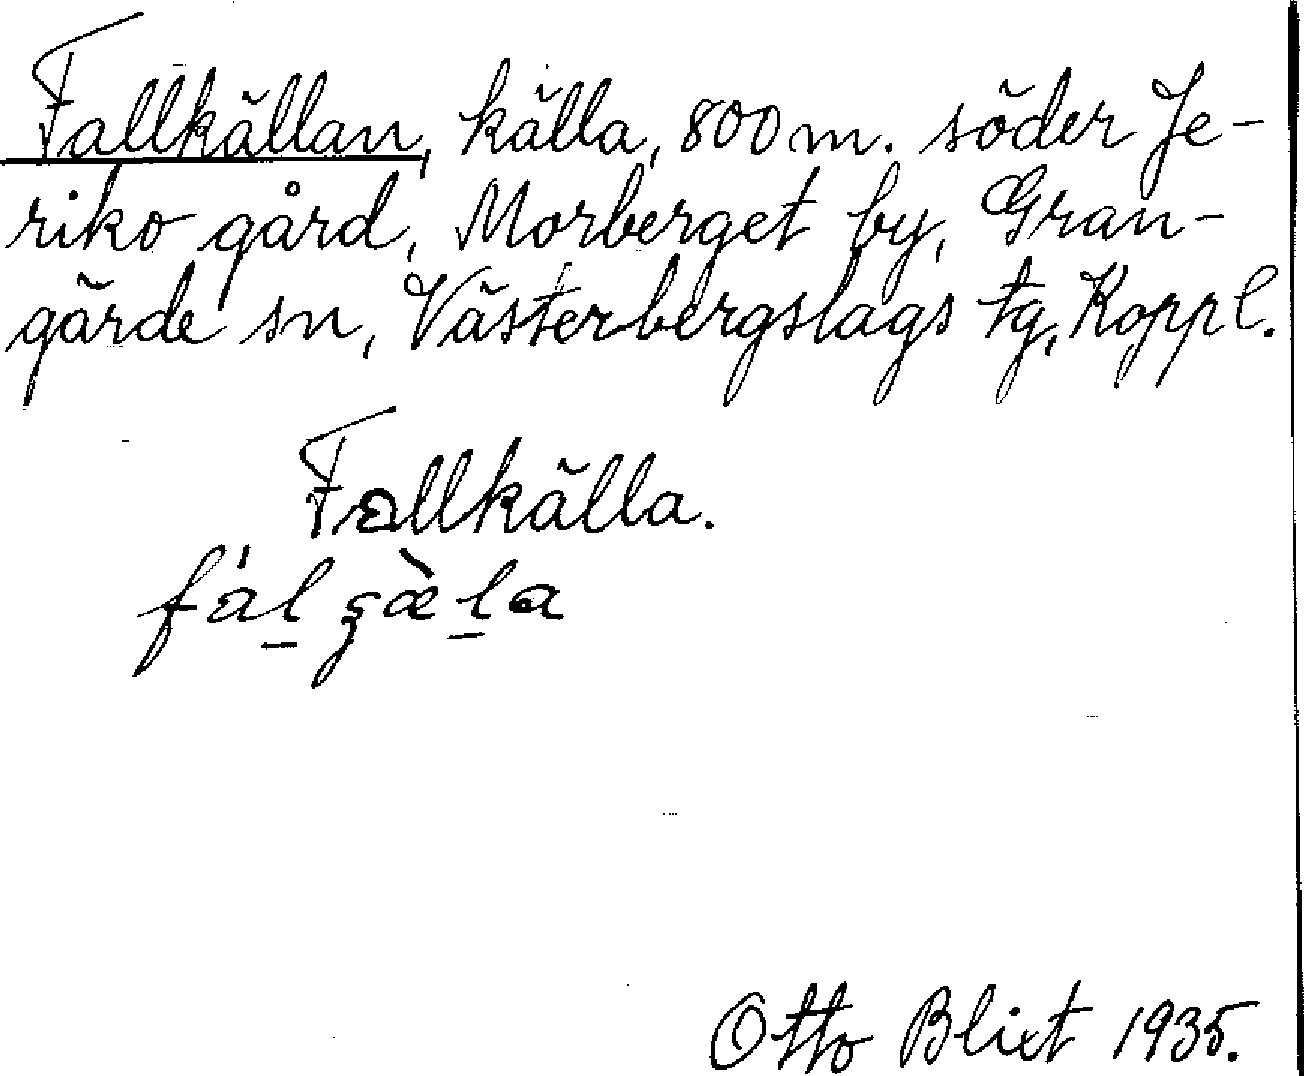 Fallkällan, källa, 800 m. söder Je-
riko gård, Morberget by, Gran-
gärde sn, Västerbergslags tg, Koppl.
Fallkälla.
fál̠ ʂæ̀l̠a
Otto Blixt 1935.